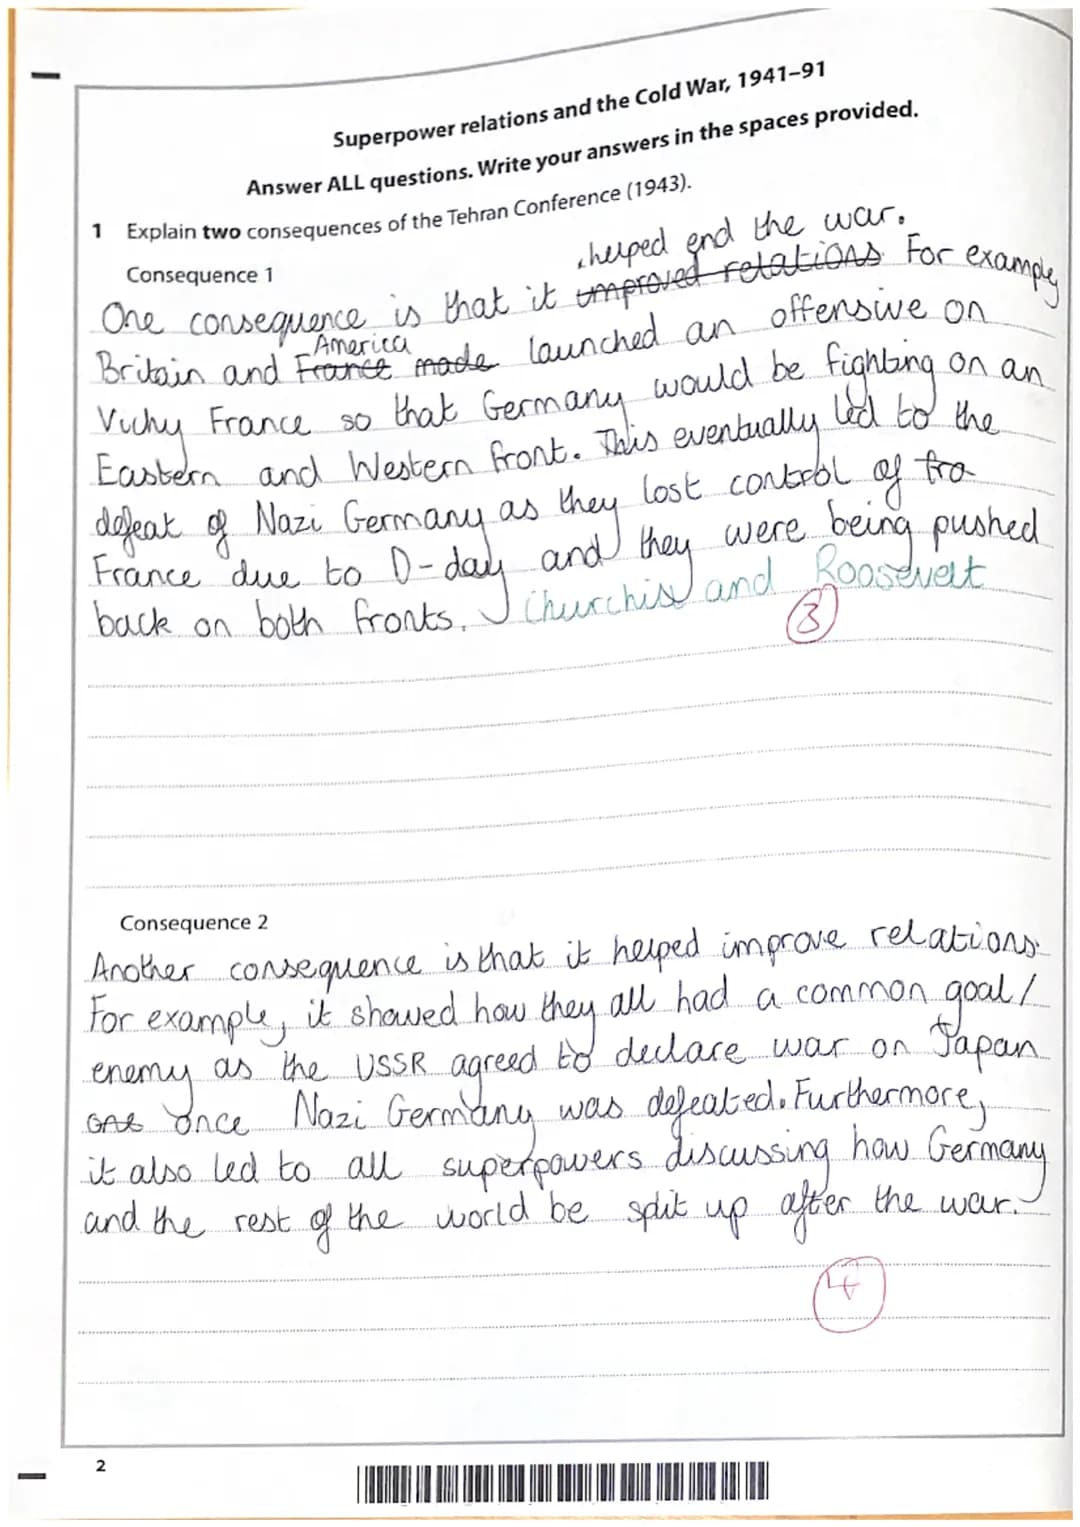 Superpower relations and the Cold War, 1941–91
Answer ALL questions. Write your answers in the spaces provided.
1 Explain two consequences of the Tehran Conference (1943).
Consequence 1
helped end the war.
One consequence is that it improved relations. For example,
America
Britain and France made launched an offensive on
Vichy France so that Germany would be fighting on an
Eastern and Western front. This eventually led to the
defeat of Nazi Germany as they lost control of fra
France due to D-day and they were being pushed
back on both fronts. Churchill and Roosevelt
3
Consequence 2
Another consequence is that it helped improve relations.
For example, it showed how they all had a common goal/
enemy as the USSR agreed to declare war on Japan
once Nazi Germany was defeated. Furthermore,
it also led to all superpowers discussing how Germany
and the rest of the world be split up after the war.
4
2